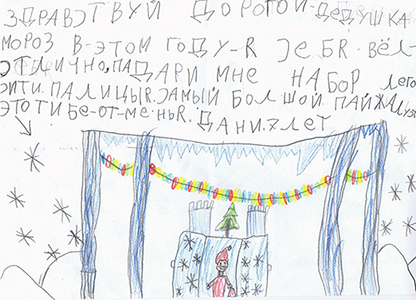 ЗДРАВЭТВУЙ ДОРОГОЙ-ДЕДУШКА
МОРОЗ В-ЭТОМ ГОДУ-R ЭЕБR-ВЁЛ
ЭТЛИЧНО, ПАДАРИ МНЕ НАБОР ЛЕГО
ЭИТИ. ПАЛИЦЫЯ. ЗАМЫЙ БОЛШОЙ ПАЙЖАЛУЗ
ЭТО ТИБЕ-ОТ-МЕНЬЯ. ДАНИ. 7 ЛЕТ